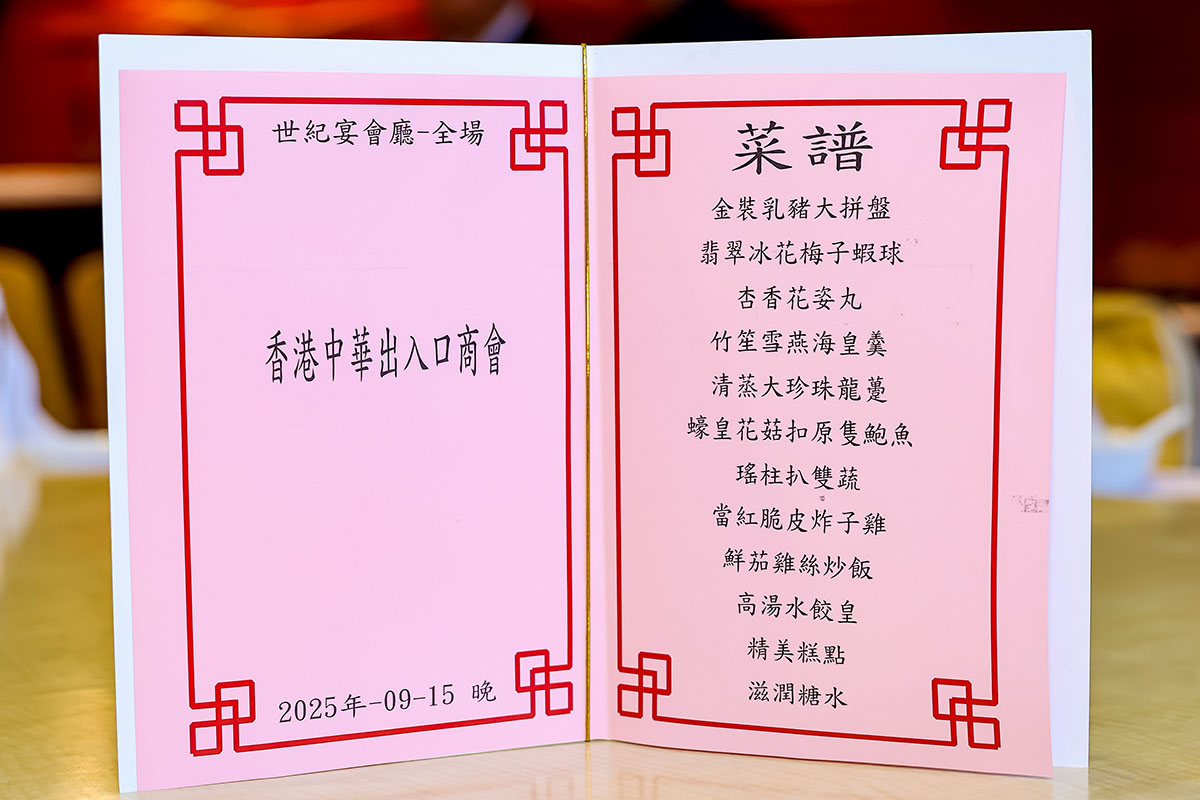 世紀宴會廳-全場
香港中華出入口商會
2025年-09-15 晚
菜譜
金裝乳豬大拼盤
翡翠冰花梅子蝦球
杏香花姿丸
竹笙雪燕海皇羹
清蒸大珍珠龍躉
蠔皇花菇扣原隻鮑魚
瑤柱扒雙蔬
當紅脆皮炸子雞
鮮茄雞絲炒飯
高湯水餃皇
精美糕點
滋潤糖水